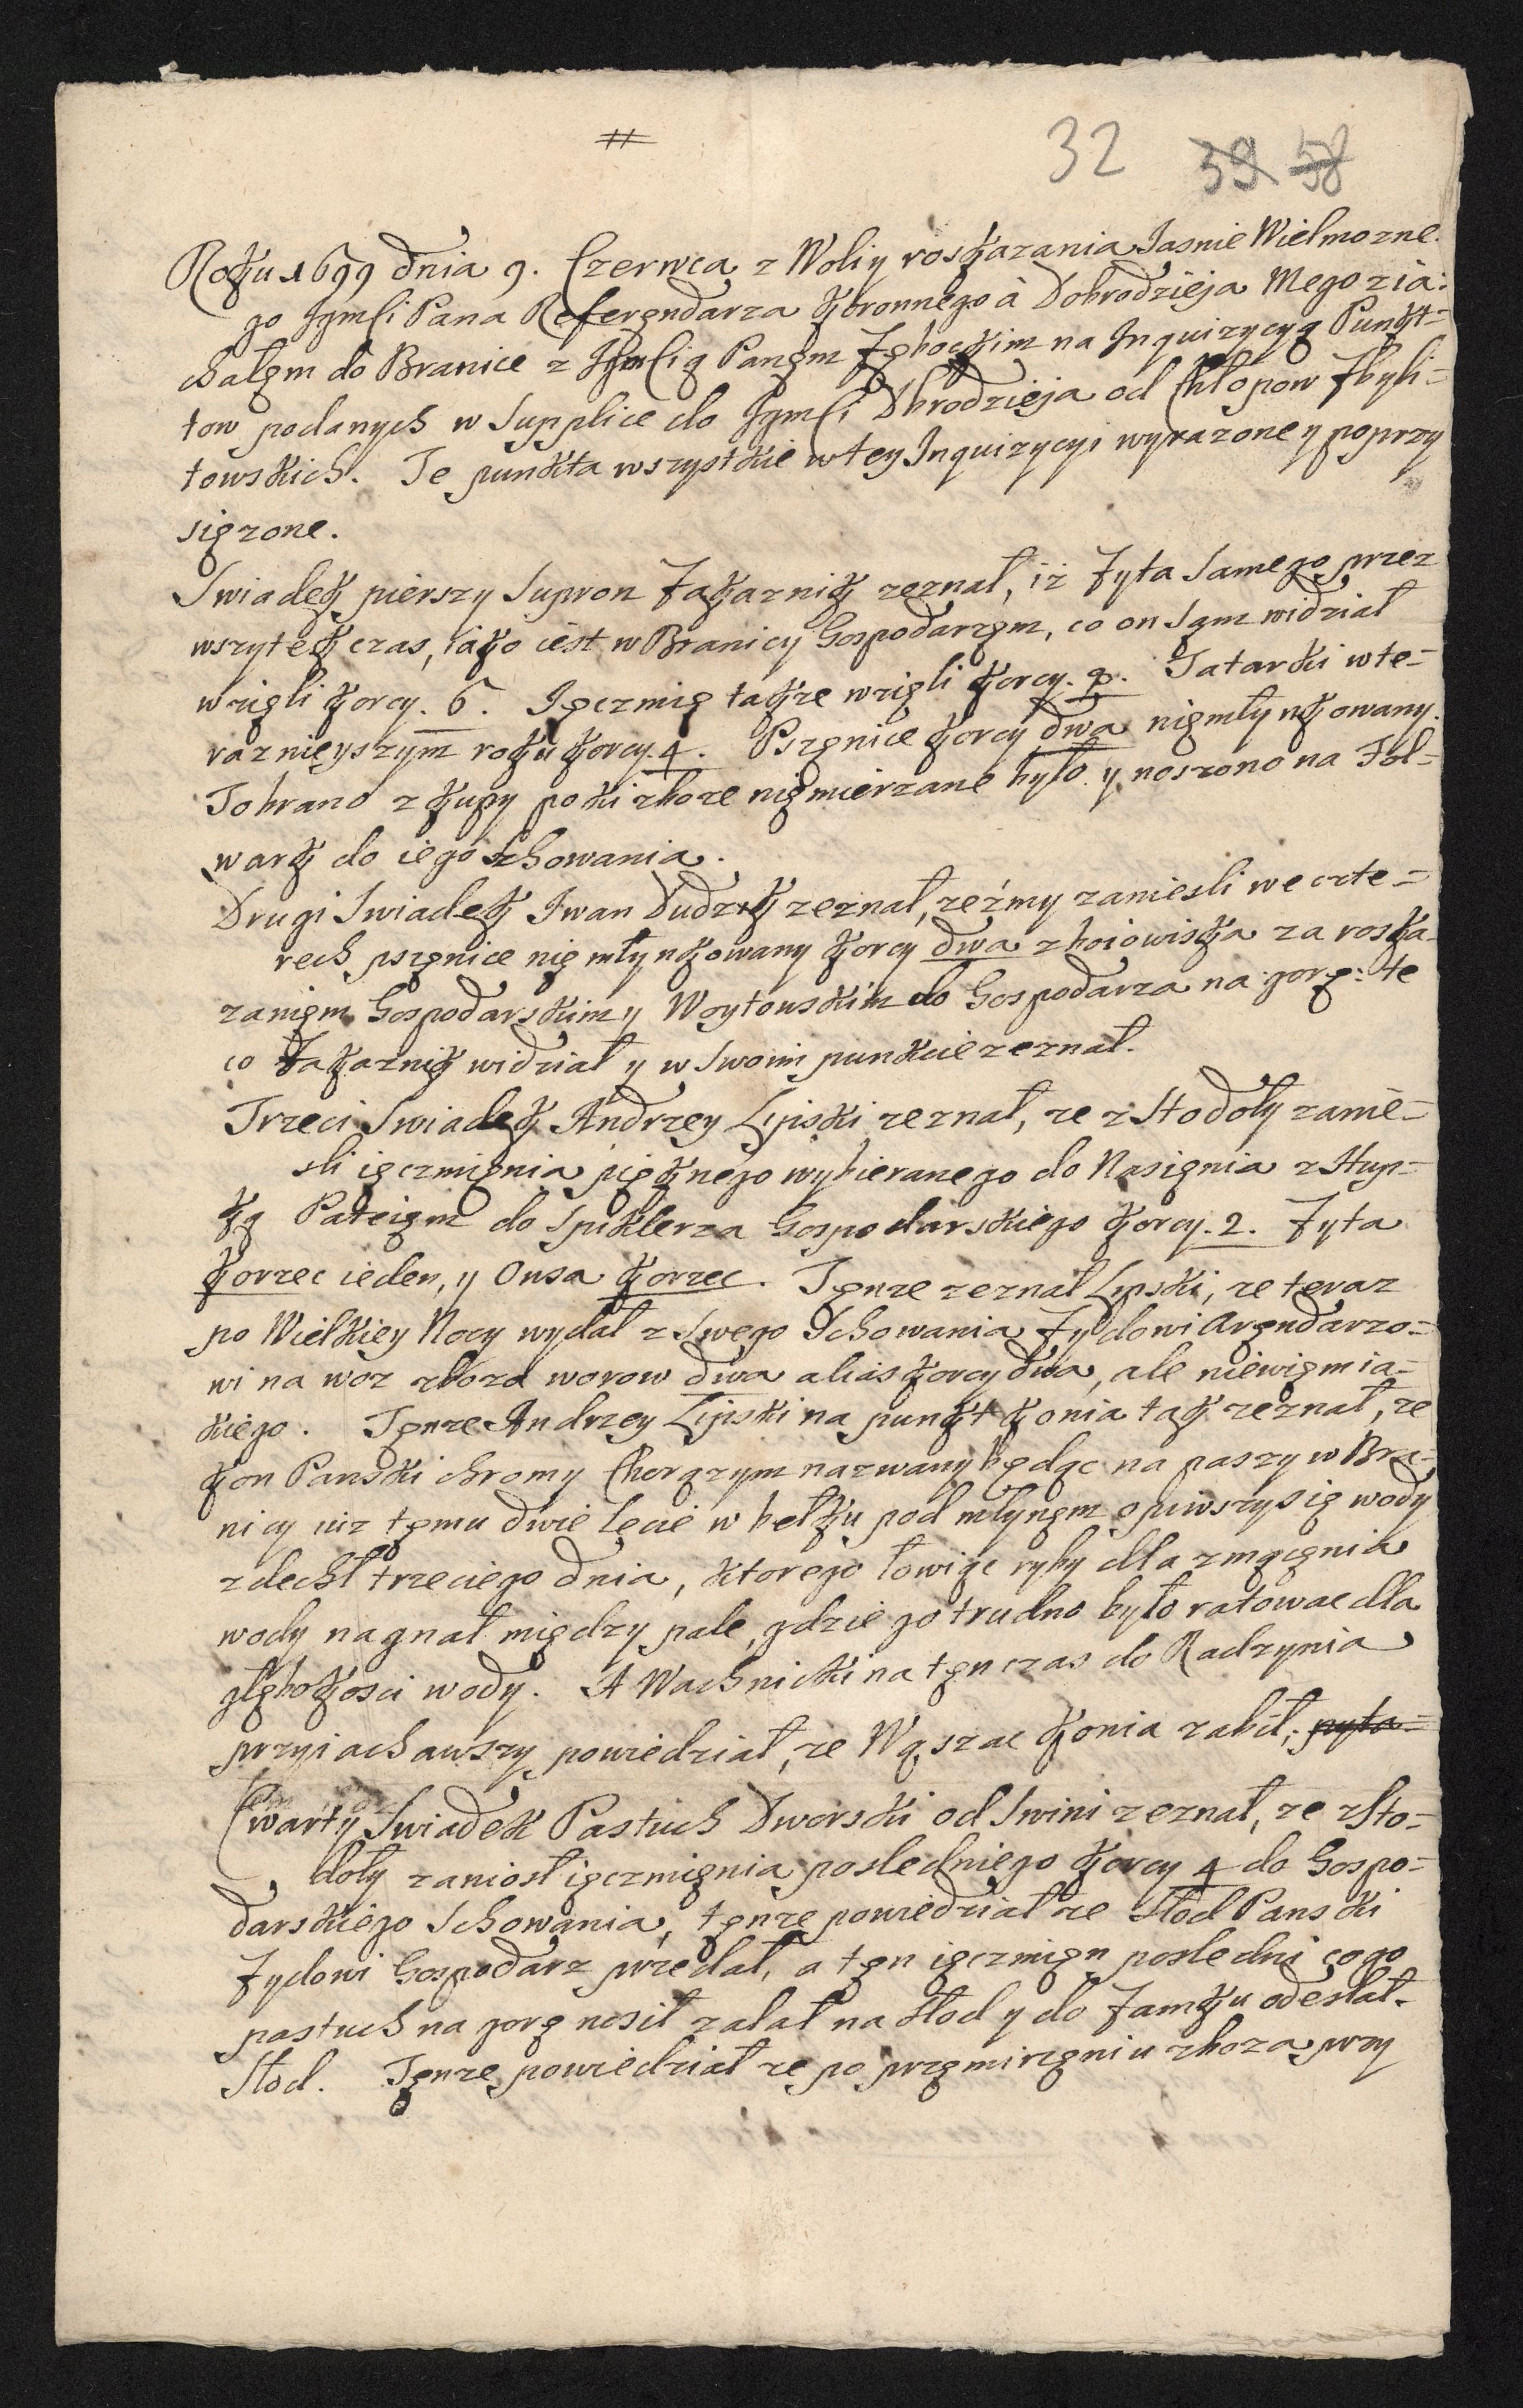 #
32 39 58
Roku 1699 dnia 9. Czerwca z Woli y roskazania Jasnie Wielmozne.
go Jgmści Pana Referęndarza Koronnego á Dobrodzieja Mego zia:
chałęm do Branice z Jgmścią Panęm Zębockim na Inquizycyą Punkt=
tow podanych w Supplice do Jgmści Dbrodzieja od Chłopow Zbyli=
towskich. Te punkta wszystkie w tey Inquizycyi wyrazone y poprzy
sięzone.
Swiadek pierszy Supron Zakaznik zeznał, iż Zyta Samego przez
wszytek czas, iako iest w Branicy Gospodarzęm, co on Sąm widział
wzięli korcy. 6. Jęczmię takze wzięli korcy. 9. Tatarki w te=
raznieyszym roku korcy. 4. Pszęnice korcy dwa nięmłynkowany.
To brano z kupy poki zboze nięmierzane było y noszono na Fol=
wark do iego schowania.
Drugi Swiadek Iwan Dudzik zeznał, zeźmy zaniesli we czte=
rech pszęnice nię młynkowany korcy dwa z boiowiska za roska
zanięm Gospodarskim y Woytowskim do Gospodarza na gorę: te
co Zakaznik widział y w Swoim punkcie zeznał.
Trzeci Swiadek Andrzey Lipski zeznał, ze z Stodoły zanie=
sli ięczmięnia pięknego wybieranego do Nasięnia z Stup=
ką Pateięm do Spiklerza Gospodarskiego korcy. 2. Zyta
korzec ieden, y Owsa korzec. Tęnze zeznał Lipski, ze teraz
po Wielkiey Nocy wydał z Swego Schowania Zydowi Aręndarzo=
wi na woz zboza worow dwa alias korcy dwa, ale niewięm ia=
kiego. Tęnze Andrzey Lipski na punkt konia tak zeznał, ze
kon Panski chromy Chorązym nazwany będąc na paszy w Bra=
nicy iuz tęmu dwie Lecie w bełku pod młynęm opiwszy się wody
zdechł trzeciego dnia, ktorego łowiąc ryby dla zmącęnia
wody nagnał między pale, gdzie go trudno było ratowac dla
głębokosci wody. A Wachnicki na tęn czas do Radzynia
przyiachawszy powiedział, ze Wąszac konia zabił; pyta=
Cwarty Swiadek Pastuch Dworski od Swini zeznał, ze z Sto=
doły zaniosł ięczmięnia posledniego korcy 4 do Gospo=
darskiego Schowania, tęnze powiedział ze Słod Panski
Zydowi Gospodarz przedał, a tęn ięczmięn posledni co go
pastuch na gorę nosił zalał na Słod y do Zamku odesłał
Słod. Tęnze powiedział ze po przęmirzęniu zboza przy